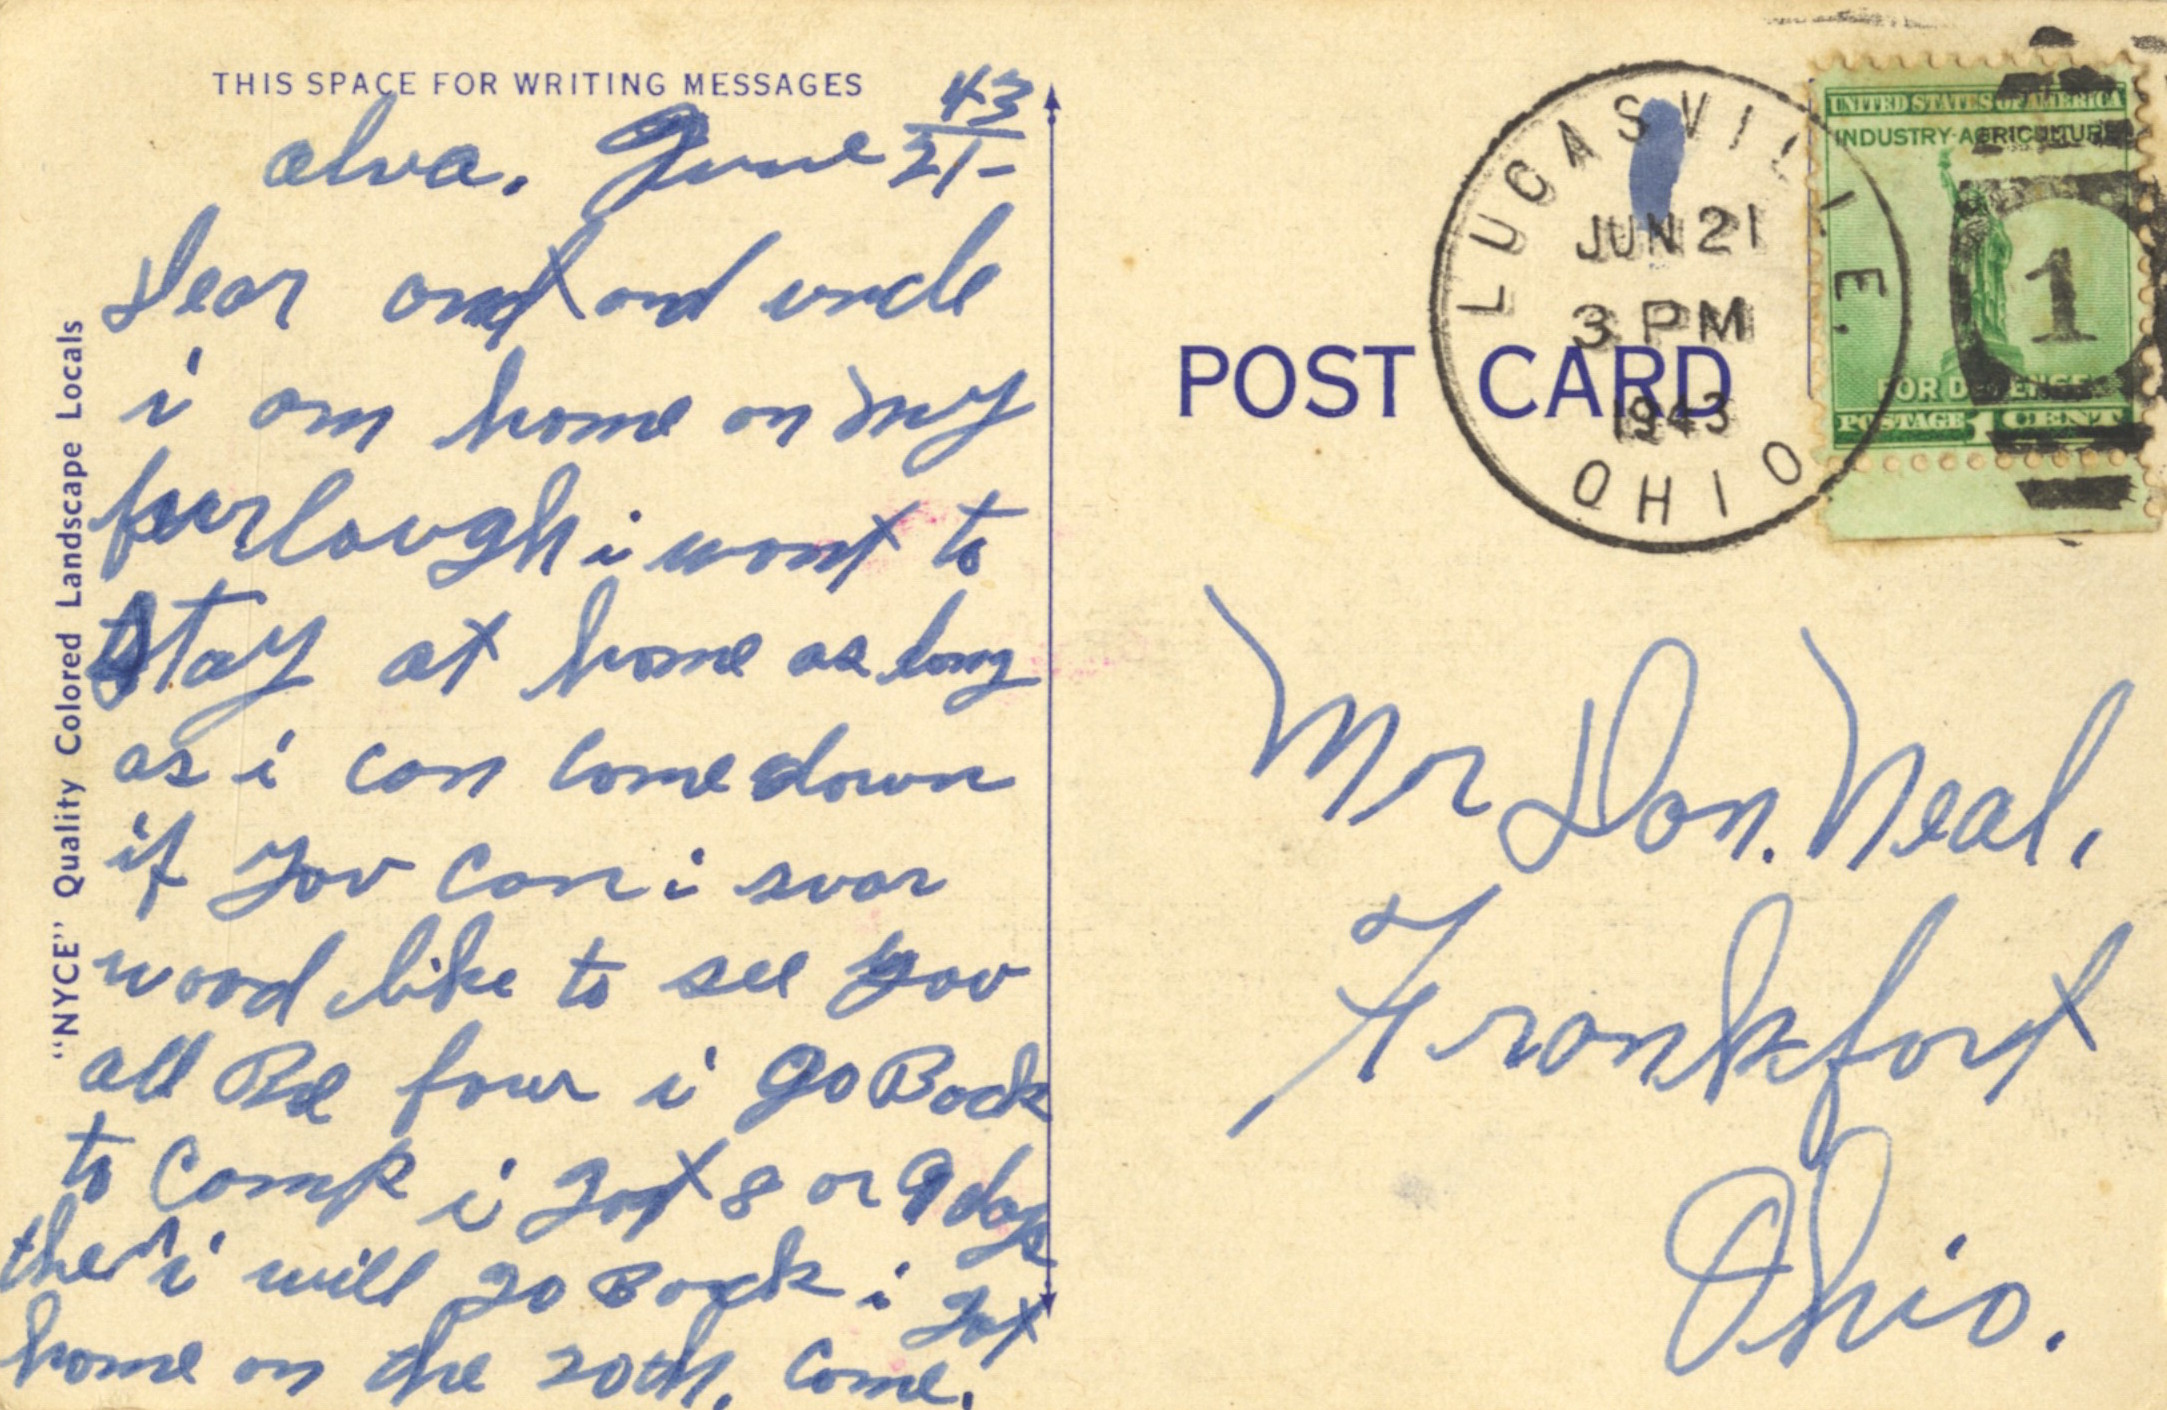 THIS SPACE FOR WRITING MESSAGES
alva. June 21- 43
Dear ant and uncle
i am home on my
furlough i wont to
stay at home as long
as i can come down
if you can i suar
wood like to see you
all Be four i go Back
to Camp i got 8 or 9 days
then i will go Back i got
home on the 20th. Come.
"NYCE" Quality Colored Landscape Locals
POST CARD
LUCASVILLE,
JUN 21
3 PM
1943
OHIO
UNITED STATES OF AMERICA
INDUSTRY-AGRICULTURE
1
FOR DEFENSE
POSTAGE 1 CENT
Mr Don. Neal,
Frankfort
Ohio.